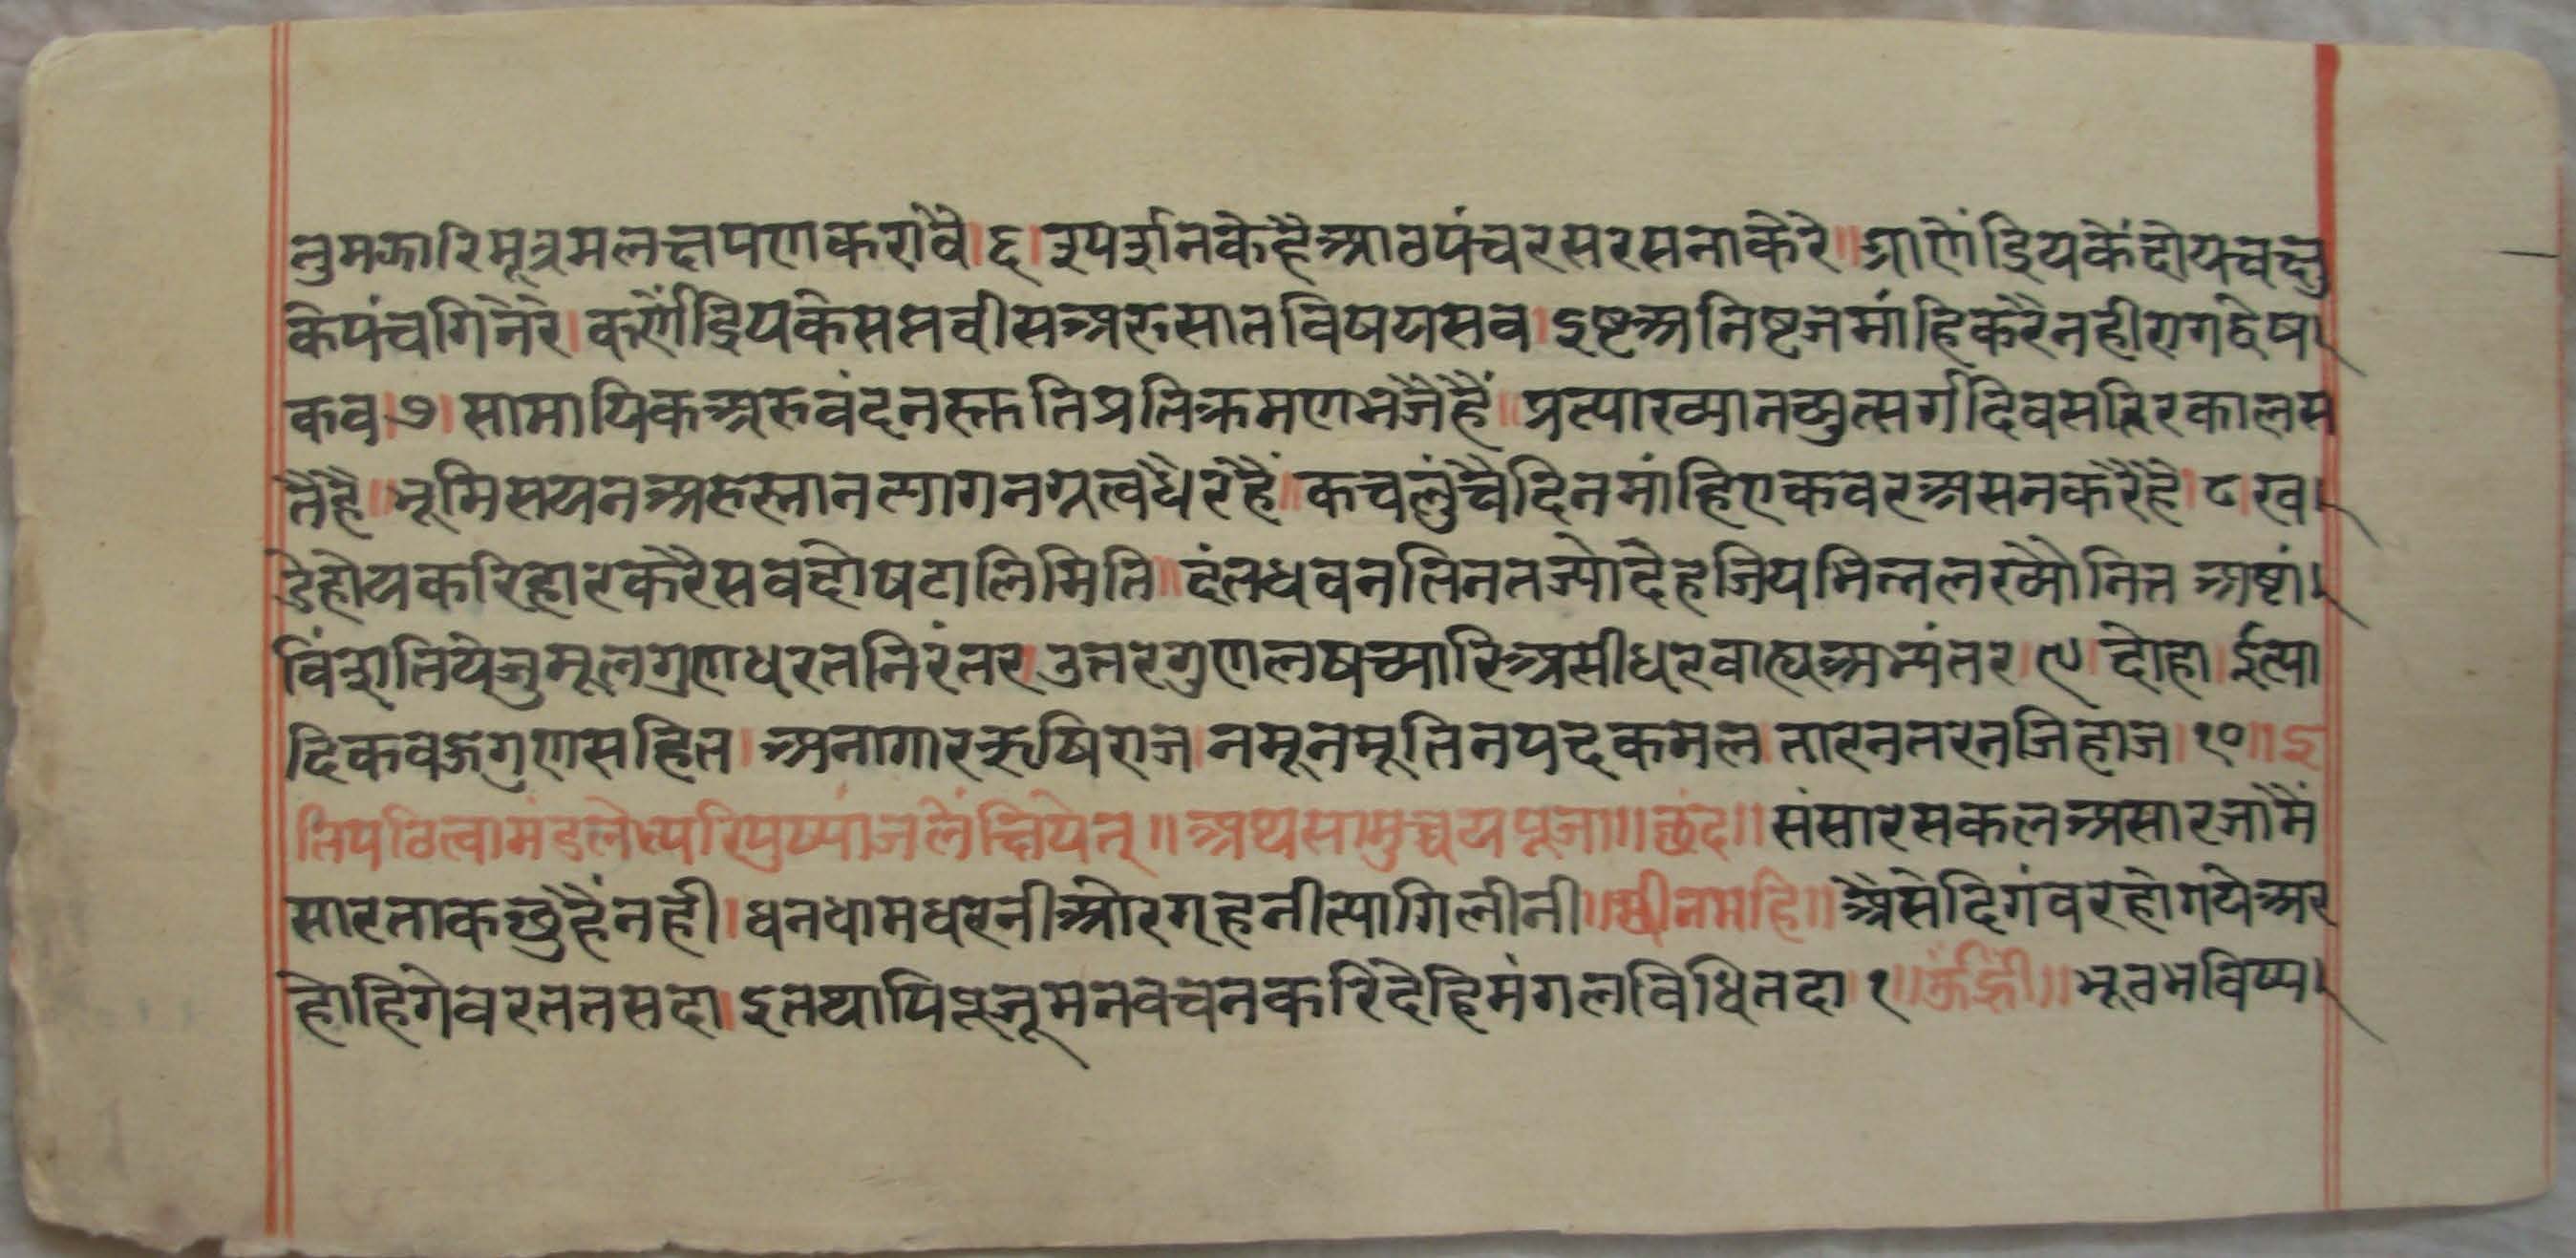 नुमझारिमूत्रमलक्षपणकरावै।६।स्पर्शनकेहैआठपंचरसरसनाकेरे॥घ्राणेंद्रियकेंदोयचक्षु
केपंचगिनेरे।कर्णेंद्रियकेसप्तवीसअरुसातविषयसव।इष्टअनिष्टजमांहिकरैनहीरागद्वेष
कव।७।सामायिकअरुवंदनस्तुतिप्रतिक्रमणभजैहैं॥प्रत्याख्यानव्युत्सर्गदिवसतिरकालस
जैहै॥भूमिसयनअरुस्नानत्यागनग्नत्वधरैहैं॥कचलुंचैदिनमांहिएकवरअसनकरैहै।८।ख
डेहोयकरिहारकरैसवदोषटालिमिति॥दंतधवनतिनतज्योदेहजियभिन्नलख्यौनित्त अष्टां
विंशतियेजुमूलगुणधरतनिरंतर।उत्तरगुणलषच्यारिअसीधरवाह्यअभ्यंतर।९।दोहा।ईत्या
दिकवऊगुणसहित।अनागारऋषिराज।नमूनमूतिनपदकमल।तारनतरनजिहाज।१०॥इ
तिपठित्वामंडलोपरिपुष्पांजलिंक्षिपेत्॥अथसामुच्चयपूजा॥छंद॥संसारसकलअसारजामैं
सारताकछुहैंनही।धनधामधरनीओरगृहनीत्यागिलीनी॥वनमहि॥अैसेदिगंवरहोगयेअर
होहिंगेवरततसदा।इतथापिपूजूमनवचनकरिदेहिमंगलविधितदा।१॥ऊँह्रीं॥भूतभविष्य